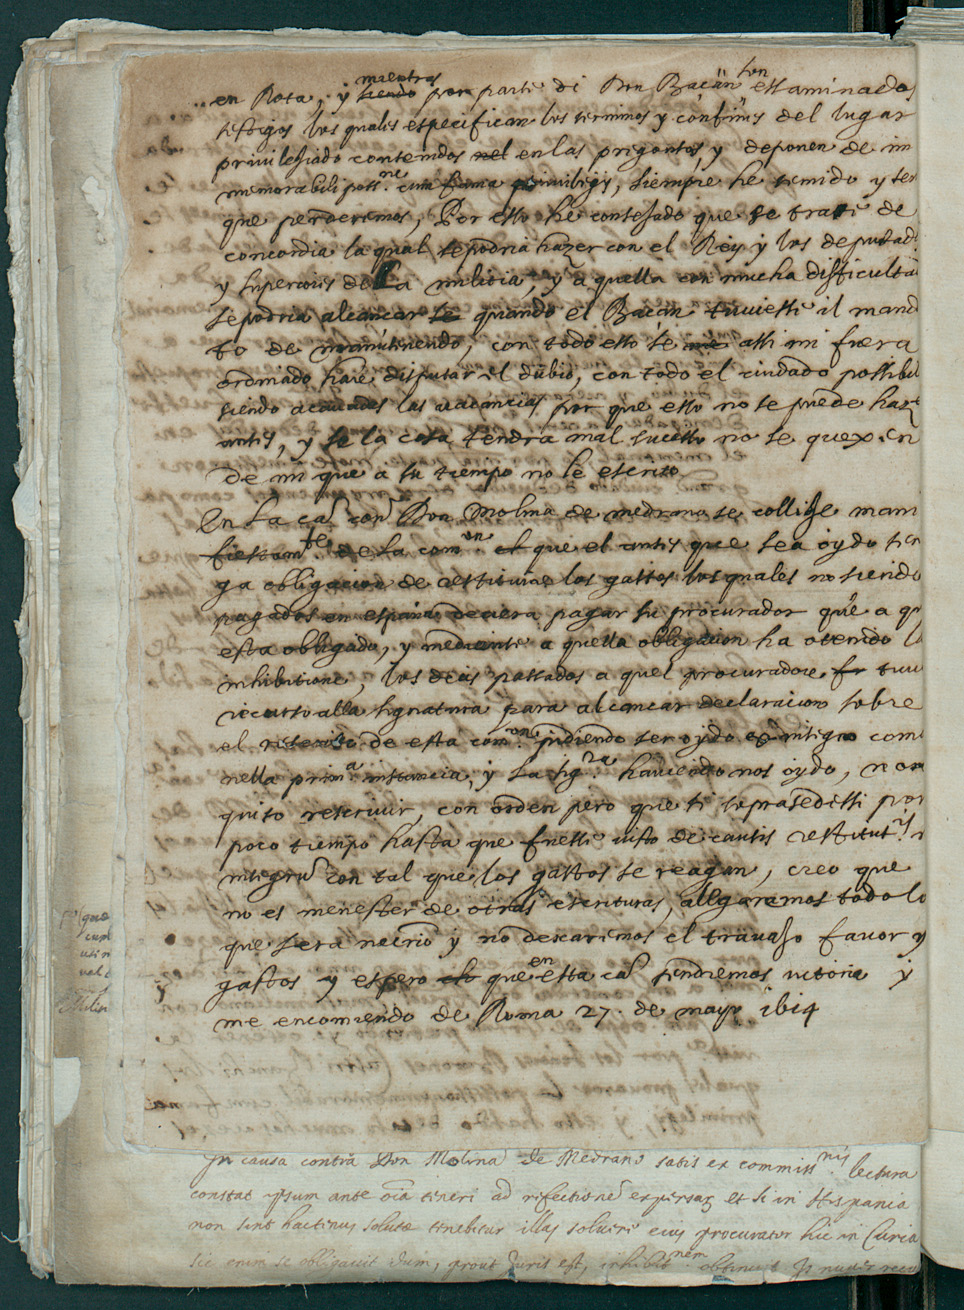 en Rota, y mientras siendo por parte di Don Baçan son essaminados
testigos los quales especifican los terminos y confines del lugar
privilesiado contenidos nel en las preguntas y deponen de im
memorabili poss.ne cum fama privilegij, siempre he temido y ten
que perderemos, Por esto he consejado que se trate de
concordia la qual se podria hazer con el Rey y los deputad
y superiores de la milicia, y a quella con mucha difficulta
se podria alcançar se quando el Bacan tuviesse il mand
to de manutenendo, con todo esto se me assi mi fuera
ordinado hare disputar el dubio, con todo el cuidado possibil
siendo acavadas las vacancias por que esto no se puede haz
antes, y se la cosa tendra mal sucesso no se quexen
de mi que a su tiempo no le escrito
En la cau con Don Molina de medrano se collige mani
fiestam.te de la com.on el que el antes que sea oydo ten
ga obligacion de restituire los gastos los quales no siendo
pagados en españa deviera pagar su procurador que a q
esta obligado, y mediante a quella obligacion ha otenido la
inhibitione, los dias passados a quel procuradore fr tuv
recurso alla signatura para alcancar declaracion sobre
el rescrito de esta com.on pidiendo ser oydo ex integro com
nella prim.a instancia, y la sig.ra haviendo nos oydo, non
quiso rescrivir, con orden pero que si soprasedessi por
poco tiempo hasta que fuesse visto de causis restitut.is i
integru con tal que los gastos se reagan, creo que
no es menester de otras escrituras, allgaremos todo lo
que sera necrio y no descaremos el travaso favor y
gastos y espero que en esta ca tendremos victoria y
me encomiendo de Roma 27. de mayo 1614
In causa contra Don Molina de Medrano satis ex commiss.nis lectura
constat ipsum ante oia teneri ad refectione expensar et si in Hispania
non sint hactenus solute tenebitur illas solvere eius procurator hic in Curia
sic enim se obligavit dum, prout juris est, inhibit.nem obtinuit